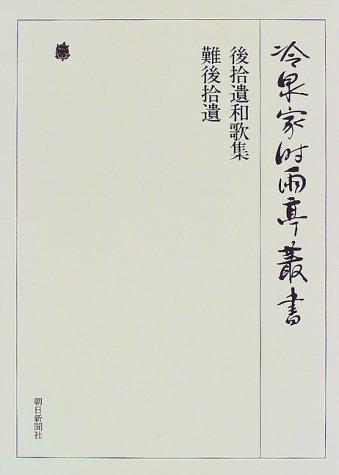 冷泉家时雨亭叢書
後拾遺和歌集
難後拾遺
朝日新聞社